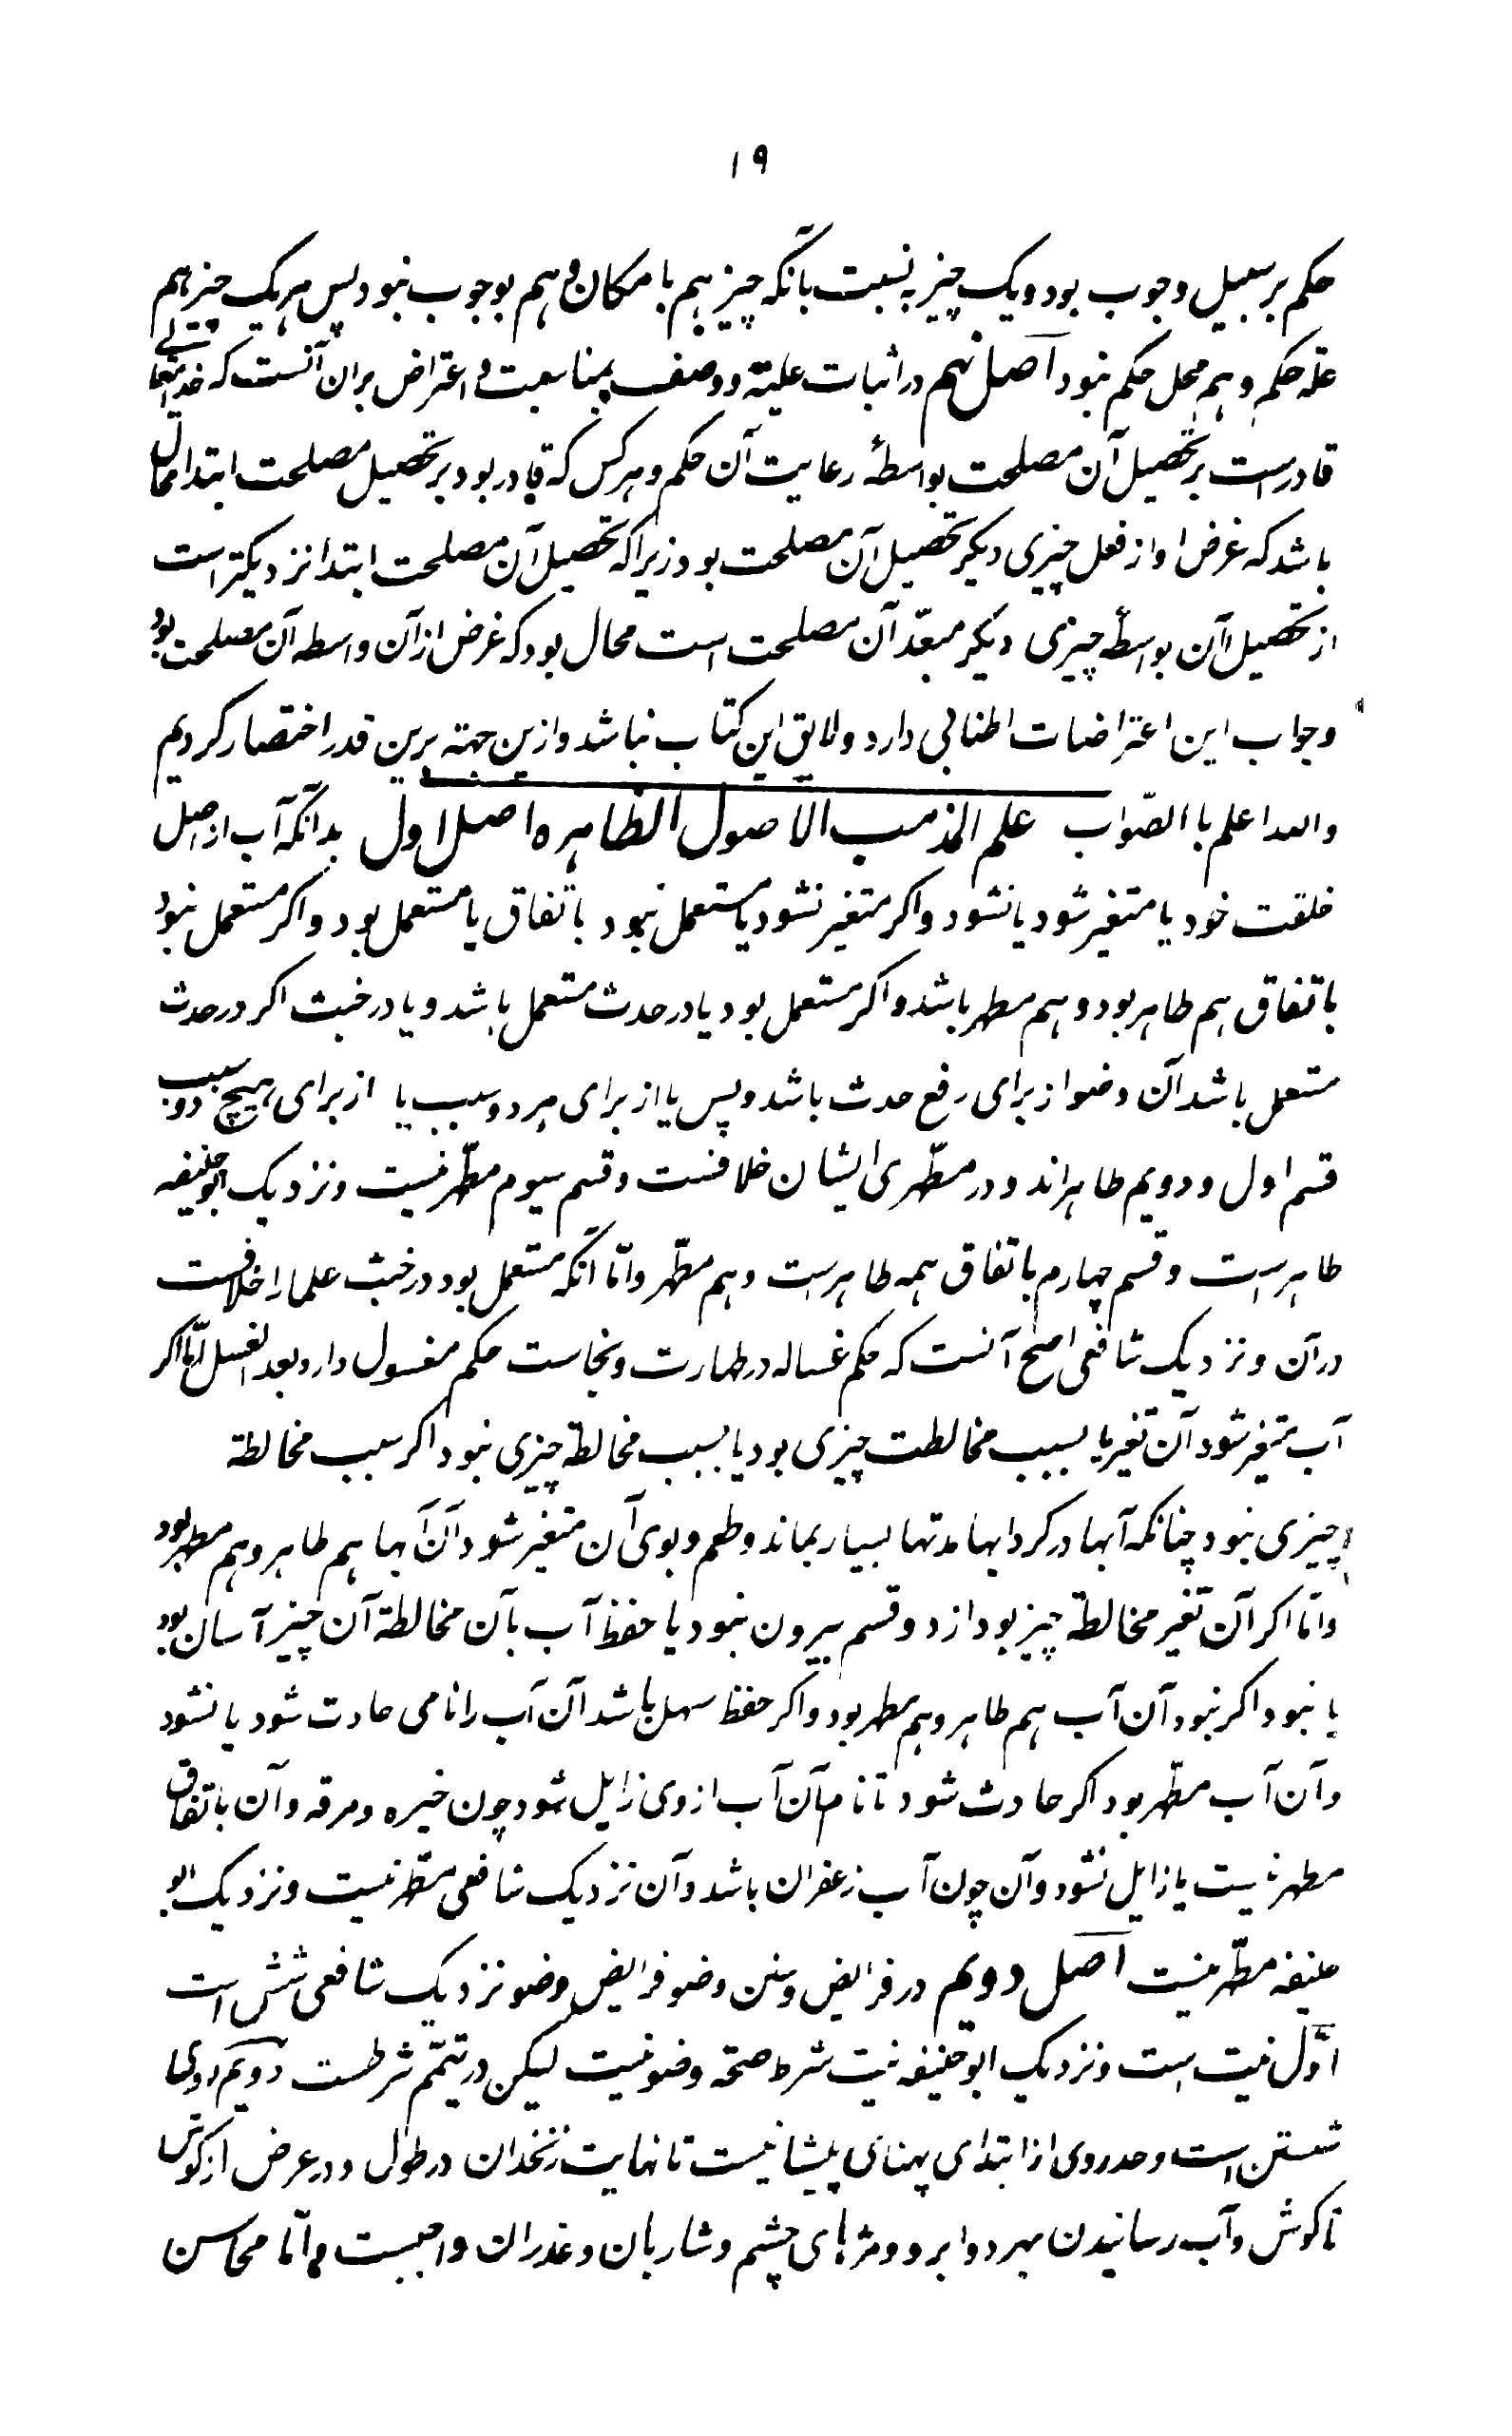 ۱۹
حکم بر سبیل وجوب بود و یک چیز به نسبت بآنکه چیز هم با مکان و هم بوجوب نبود پس هر یک چیز هم
علة حکم و هم محل حکم نبود اصل نهم در اثبات علیة و وصف بمناسبت و اعتراض بران آنست که خدایتعالی
قادر است بر تحصیل آن مصلحت بواسطۀ رعایت آن حکم و هر کس که قادر بود بر تحصیل مصلحت ابتدا محال
باشد که غرض او از فعل چیزی دیکر تحصیل آن مصلحت بود زیرا که تحصیل آن مصلحت ابتدا نزدیکتر است
از تحصیل آن بواسطۀ چیزی دیکر معدّ آن مصلحت است محال بود که غرض از آن واسطه آن مصلحت بود
و جواب این اعتراضات اطنابی دارد و لایق این کتاب نباشد و ازین جهته برین قدر اختصار کردیم
والله اعلم باالصّواب علم المذهب الاصول الظاهره اصل اول بدآنکه آب از اصل
خلقت خود یا متغیر شود یا نشود و اکر متغیر نشود یا مستعمل نبود باتفاق یا مستعمل بود و اکر مستعمل نبود
باتفاق هم طاهر بود و هم مطهر باشد و اکر مستعمل بود یا در حدث مستعمل باشد و یا در خبث اکر در حدث
مستعمل باشد آن وضو از برای رفع حدث باشد و پس یا از برای هر دو سبب یا از برای هیچ دو سبب
قسم اول و دویم طاهراند و در مطهّری ایشان خلافست و قسم سیوم مطهّر نیست و نزدیک ابوحنیفه
طاهر است و قسم چهارم باتفاق همه طاهر است و هم مطهّر و امّا آنکه مستعمل بود در خبث علما را خلافست
در آن و نزدیک شافعی اصح آنست که حکم غساله در طهارت و نجاست حکم مغسول دارد بعد الغسل امّا اکر
آب متغیر شود آن تغیر یا بسبب مخالطت چیزی بود یا بسبب مخالطة چیزی نبود اکر سبب مخالطة
چیزی نبود چنانکه آبها در کردابها مدتها بسیار بماند و طعم و بوی آن متغیر شود آن آبها هم طاهر و هم مطهر بود
و امّا اکر آن تغیر مخالطة چیز بود از دو قسم بیرون نبود یا حفظ آب بآن مخالطة آن چیز آسان بود
یا نبود اکر نبود آن آب هم طاهر و هم مطهر بود و اکر حفظ سهل باشد آن آب را نامی حادث شود یا نشود
و آن آب مطهّر بود اکر حادث شود تا نام آن آب از وی زایل شود چون خیره و مرقه و آن باتفاق
مطهر نیست یا زایل نشود و آن چون آب زعفران باشد و آن نزدیک شافعی مطّهر نیست و نزدیک ابو
حنیفه مطّهر نیست اصل دویم در فرایض و سنن وضو فرایض وضو نزدیک شافعی شش است
اوّل نیت است و نزدیک ابوحنیفه نیت شرط صحة وضو نیست لیکن در تیمّم شرطست دویم روی
شستن است و حد روی از ابتدای پهنای پیشانیست تا نهایت زنخدان در طول و در عرض از کوش
تا کوش و آب رسانیدن بهر دو ابرو و مژهای چشم و شاربان و غدران واجبست و امّا محاسن